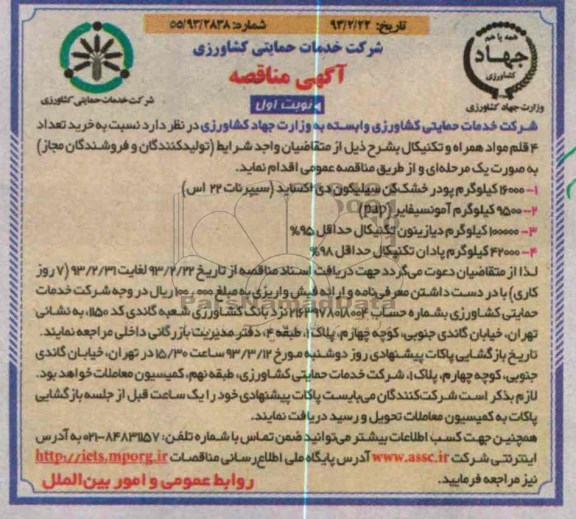 تاریخ: ۹۳/۲/۲۲
شماره: ۵۵/۹۳/۲۸۳۸
همه با هم
جهاد
کشاورزی
وزارت جهاد کشاورزی
شرکت خدمات حمایتی کشاورزی
شرکت خدمات حمایتی کشاورزی
آگهی مناقصه
نوبت اول
شرکت خدمات حمایتی کشاورزی وابسته به وزارت جهاد کشاورزی در نظر دارد نسبت به خرید تعداد
۴ قلم مواد همراه و تکنیکال بشرح ذیل از متقاضیان واجد شرایط (تولیدکنندگان و فروشندگان مجاز)
به صورت یک مرحله‌ای و از طریق مناقصه عمومی اقدام نماید.
۱- ۱۶۰۰۰ کیلوگرم پودر خشک‌کن سیلیکون دی اکساید (سیپرنات ۲۲ اس)
۲- ۹۵۰۰ کیلوگرم آمونسیفایر (pap)
۳- ۱۰۰۰۰۰ کیلوگرم دیازینون تکنیکال حداقل ۹۵%
۴- ۴۲۰۰۰ کیلوگرم پادان تکنیکال حداقل ۹۸%
لذا از متقاضیان دعوت می‌گردد جهت دریافت اسناد مناقصه از تاریخ ۹۳/۲/۲۲ لغایت ۹۳/۲/۳۱ (۷ روز
کاری) با در دست داشتن معرفی‌نامه و ارائه فیش واریزی به مبلغ ۱۰۰,۰۰۰ ریال در وجه شرکت خدمات
حمایتی کشاورزی بشماره حساب نزد بانک کشاورزی شعبه گاندی کد ۱۱۵۰، به نشانی
تهران، خیابان گاندی جنوبی، کوچه چهارم، پلاک ۱، طبقه ۴، دفتر مدیریت بازرگانی داخلی مراجعه نمایند.
تاریخ بازگشایی پاکات پیشنهادی روز دوشنبه مورخ ۹۳/۳/۱۲ ساعت ۱۵/۳۰ در تهران، خیابان گاندی
جنوبی، کوچه چهارم، پلاک ۱، شرکت خدمات حمایتی کشاورزی، طبقه نهم، کمیسیون معاملات خواهد بود.
لازم بذکر است شرکت‌کنندگان می‌بایست پاکات پیشنهادی خود را یک ساعت قبل از جلسه بازگشایی
پاکات به کمیسیون معاملات تحویل و رسید دریافت نمایند.
همچنین جهت کسب اطلاعات بیشتر می‌توانید ضمن تماس با شماره تلفن: ۸۴۸۳۱۱۵۷-۰۲۱ به آدرس
اینترنتی شرکت www.assc.ir آدرس پایگاه ملی اطلاع‌رسانی مناقصات http://iets.mporg.ir
نیز مراجعه فرمایید.
روابط عمومی و امور بین‌الملل
ParsNamadData